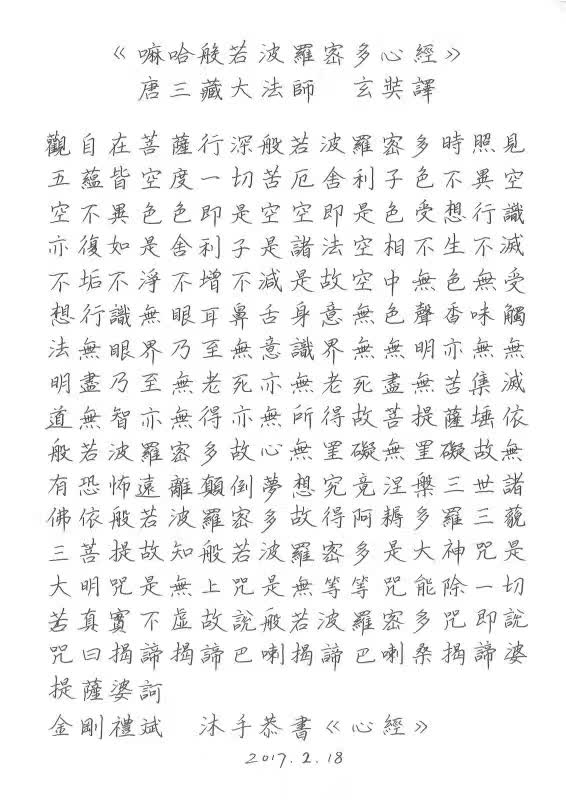 《嘛哈般若波羅密多心經》
唐三藏大法師　玄奘譯
觀自在菩薩行深般若波羅密多時照見
五蘊皆空度一切苦厄舍利子色不異空
空不異色色即是空空即是色受想行識
亦復如是舍利子是諸法空相不生不滅
不垢不淨不增不減是故空中無色無受
想行識無眼耳鼻舌身意無色聲香味觸
法無眼界乃至無意識界無無明亦無無
明盡乃至無老死亦無老死盡無苦集滅
道無智亦無得亦無所得故菩提薩埵依
般若波羅密多故心無罣礙無罣礙故無
有恐怖遠離顛倒夢想究竟涅槃三世諸
佛依般若波羅密多故得阿耨多羅三藐
三菩提故知般若波羅密多是大神咒是
大明咒是無上咒是無等等咒能除一切
苦真實不虛故說般若波羅密多咒即說
咒曰揭諦揭諦巴喇揭諦巴喇桑揭諦婆
提薩婆訶
金剛禮斌　沐手恭書《心經》
2017.2.18